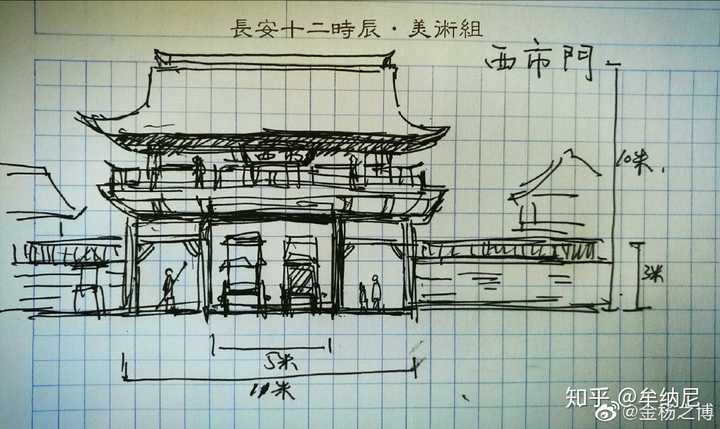 長安十二時辰·美術組
西市門
西市
10米
3米
5米
10米
知乎 @牟纳尼
@金杨之博